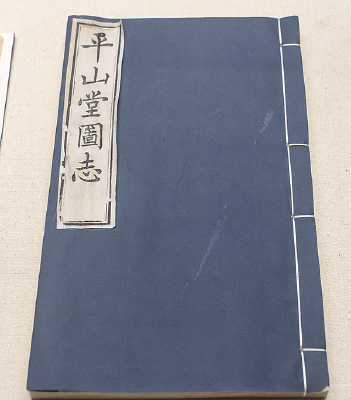 平山堂圖志